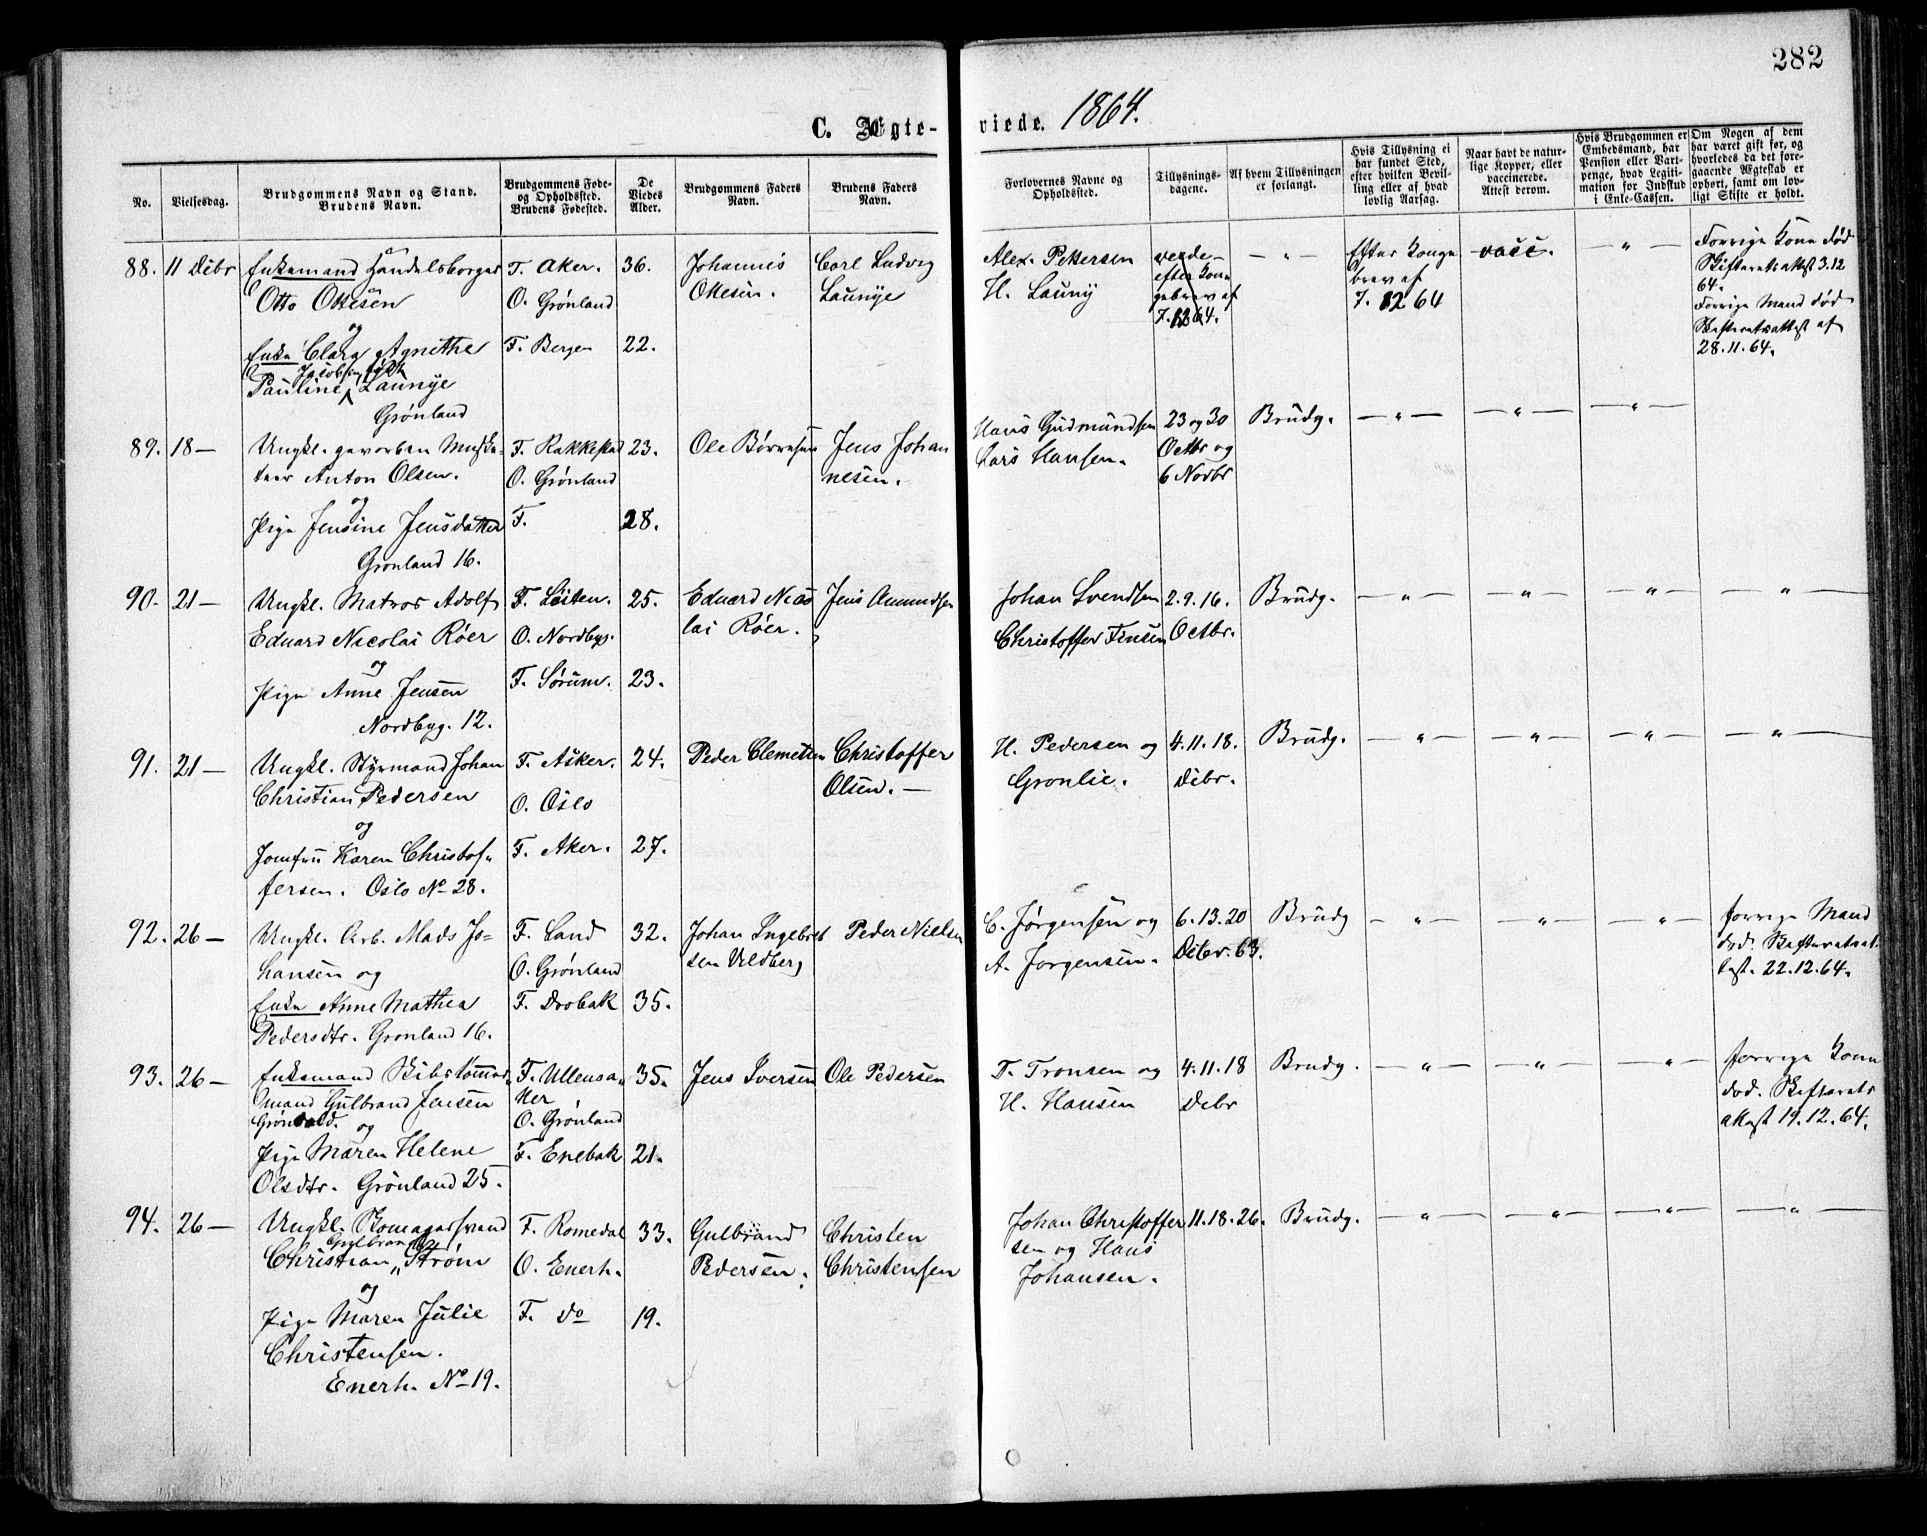 282
C. Ægte-viede. 1864.
No.
Vielsesdag.
Brudgommens Navn og Stand.
Brudens Navn.
Brudgommens Føde-
og Opholdssted.
Brudens Fødested.
De
Viedes
Alder.
Brudgommens Faders
Navn.
Brudens Faders
Navn.
Forlovernes Navne og
Opholdssted.
Tillysnings-
dagene.
Af hvem Tillysningen
er forlangt.
Hvis Tillysning ei
har fundet Sted,
efter hvilken Bevil-
ling eller af hvad
lovlig Aarsag.
Naar havt de natur-
lige Kopper, eller
vaccinerede.
Attest derom.
Hvis Brudgommen er
Embedsmand, har
Pension eller Vart-
penge, hvad Legiti-
mation for Indskud
i Enke-Cassen.
Om Nogen af dem
har været gift før, og
hvorledes da det fore-
gaaende Ægteskab er
ophørt, samt om lov-
ligt Skifte er holdt.
88. 11 Debr
Enkemand Handelsborger
Otto Ottesen
og
Enke Clara Agnethe
Pauline Jacobsen født Launye
Grønland
F. Aker.
O. Grønland
F. Bergen
36.
22.
Johannes
Ottesen.
Carl Ludvig
Launye
Alex. Pettersen
H. Launy
efter Konge
gebrev af
7. 12 64.
— " —
Efter Konge
brev af
7. 12 64
vacc.
— " —
Forrige Kone død
Skifteretsattest 3.12
64.
Forrige Mand død
Skifteretsattest af
28. 11. 64.
89. 18 —
Ungk. gevorben Muske-
teer Anton Olsen.
og
Pige Jensine Jensdatter
Grønland 16.
F. Rakkestad
O. Grønland
F.
23.
28.
Ole Børresen
Jens Johan
nesen.
Hans Gudmundsen
Lars Hansen.
23 og 30
Octbr og
6 Novbr
Brudg.
— " —
— " —
— " —
90. 21 —
Ungk. Matros Adolf
Eduard Nicolai Røer
og
Pige Anne Jensen
Nordbyg. 12.
F. Løiten.
O. Nordbyg.
F. Sørum.
25.
23.
Eduard Nico
lai Røer.
Jens Amundsen
Johan Svendsen
Christoffer Jensen
2. 9. 16.
Octbr.
Brudg.
— " —
— " —
— " —
— " —
91. 21 —
Ungk. Styrmand Johan
Christian Pedersen
og
Jomfru Karen Christof-
fersen. Oslo No 28.
F. Asker.
O. Oslo
F. Aker.
24.
27.
Peder Clemetsen
Christoffer
Olsen. —
H. Pedersen og
Grønlie.
4. 11. 18.
Debr.
Brudg.
— " —
— " —
— " —
— " —
92. 26 —
Ungk. Arb. Mads Jo-
hansen og
Enke Anne Mathea
Pedersdtr. Grønland 16.
F. Land
O. Grønland
F. Drøbak
32.
35.
Johan Ingebret
sen Veldberg
Peder Nielsen
C. Jørgensen og
A. Jørgensen.
6. 13. 20
Debr. 63.
Brudg
— " —
— " —
— " —
forrige Mand
død. Skifteretsat
test. 22. 12. 64.
93. 26 —
Enkemand Skibstømmer-
mand Gulbrand Jensen
Grønvold. og
Pige Maren Helene
Olsdtr. Grønland 25.
F. Ullensa-
ker
O. Grønland
F. Enebak
35.
21.
Jens Iversen
Ole Pedersen
T. Tronsen og
H. Hansen
4. 11. 18
Debr
Brudg.
— " —
— " —
— " —
forrige Kone
død. Skifterets
attest 19. 12. 64.
94. 26 —
Ungk. Skomagersvend
Christian Gulbrandsen Strøm
og
Pige Maren Julie
Christensen.
Enerh. No 19.
F. Romedal
O. Enerh.
F. do
33.
19.
Gulbrand
Pedersen.
Christen
Christensen
Johan Christoffer
sen og Hans
Johansen.
11. 18. 26.
Brudg.
— " —
— " —
— " —
— " —